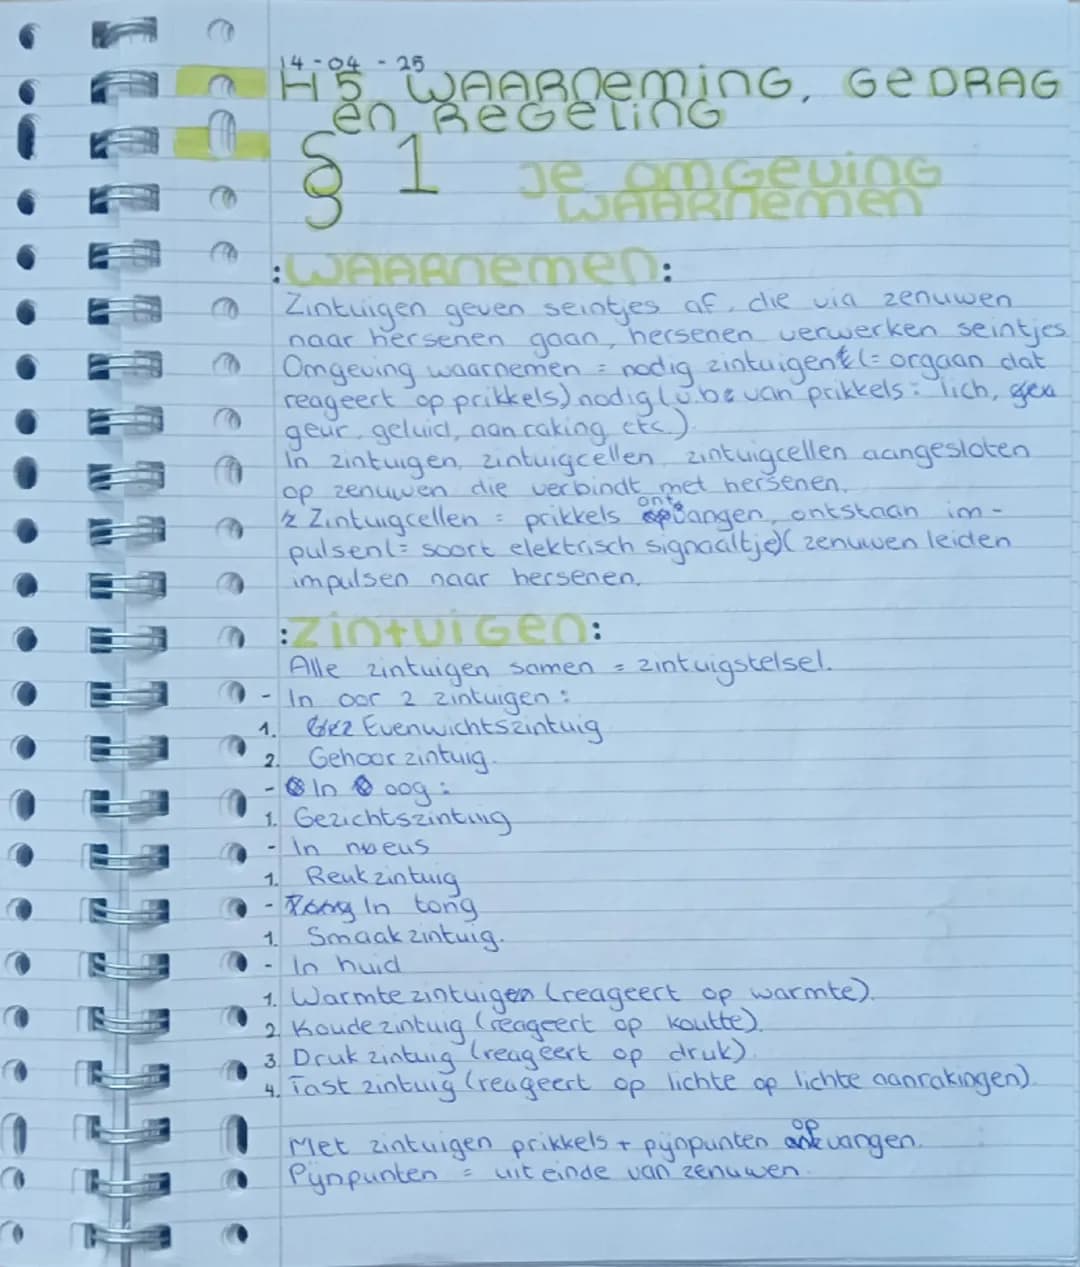 14-04-25
H5 WAARNEMING, GEDRAG
en REGELING
§ 1 Je omgeving
WAARNEMEN
:WAARNEMEN:
Zintuigen geven seintjes af, die via zenuwen
naar hersenen gaan, hersenen verwerken seintjes
Omgeving waarnemen = nodig zintuigen (= orgaan dat
reageert op prikkels) nodig (v.b. van prikkels: lich,
geur, geluid, aanraking etc.)
In zintuigen, zintuigcellen, zintuigcellen aangesloten
op zenuwen die verbindt met hersenen.
Zintuigcellen = prikkels ontvangen, ontstaan im-
pulsen (= soort elektrisch signaaltje) (zenuwen leiden
impulsen naar hersenen.
:Zintuigen:
Alle zintuigen samen = zintuigstelsel.
- In oor 2 zintuigen:
1. Evenwichtszintuig
2. Gehoorzintuig.
- In oog:
1. Gezichtszintuig
- In neus
1. Reukzintuig
- In tong
1. Smaakzintuig.
- In huid
1. Warmtezintuigen (reageert op warmte).
2. Koudezintuig (reageert op koutte).
3. Drukzintuig (reageert op druk).
4. Tastzintuig (reageert op lichte op lichte aanrakingen).
Met zintuigen prikkels + pijnpunten opvangen.
Pijnpunten = uiteinde van zenuwen.